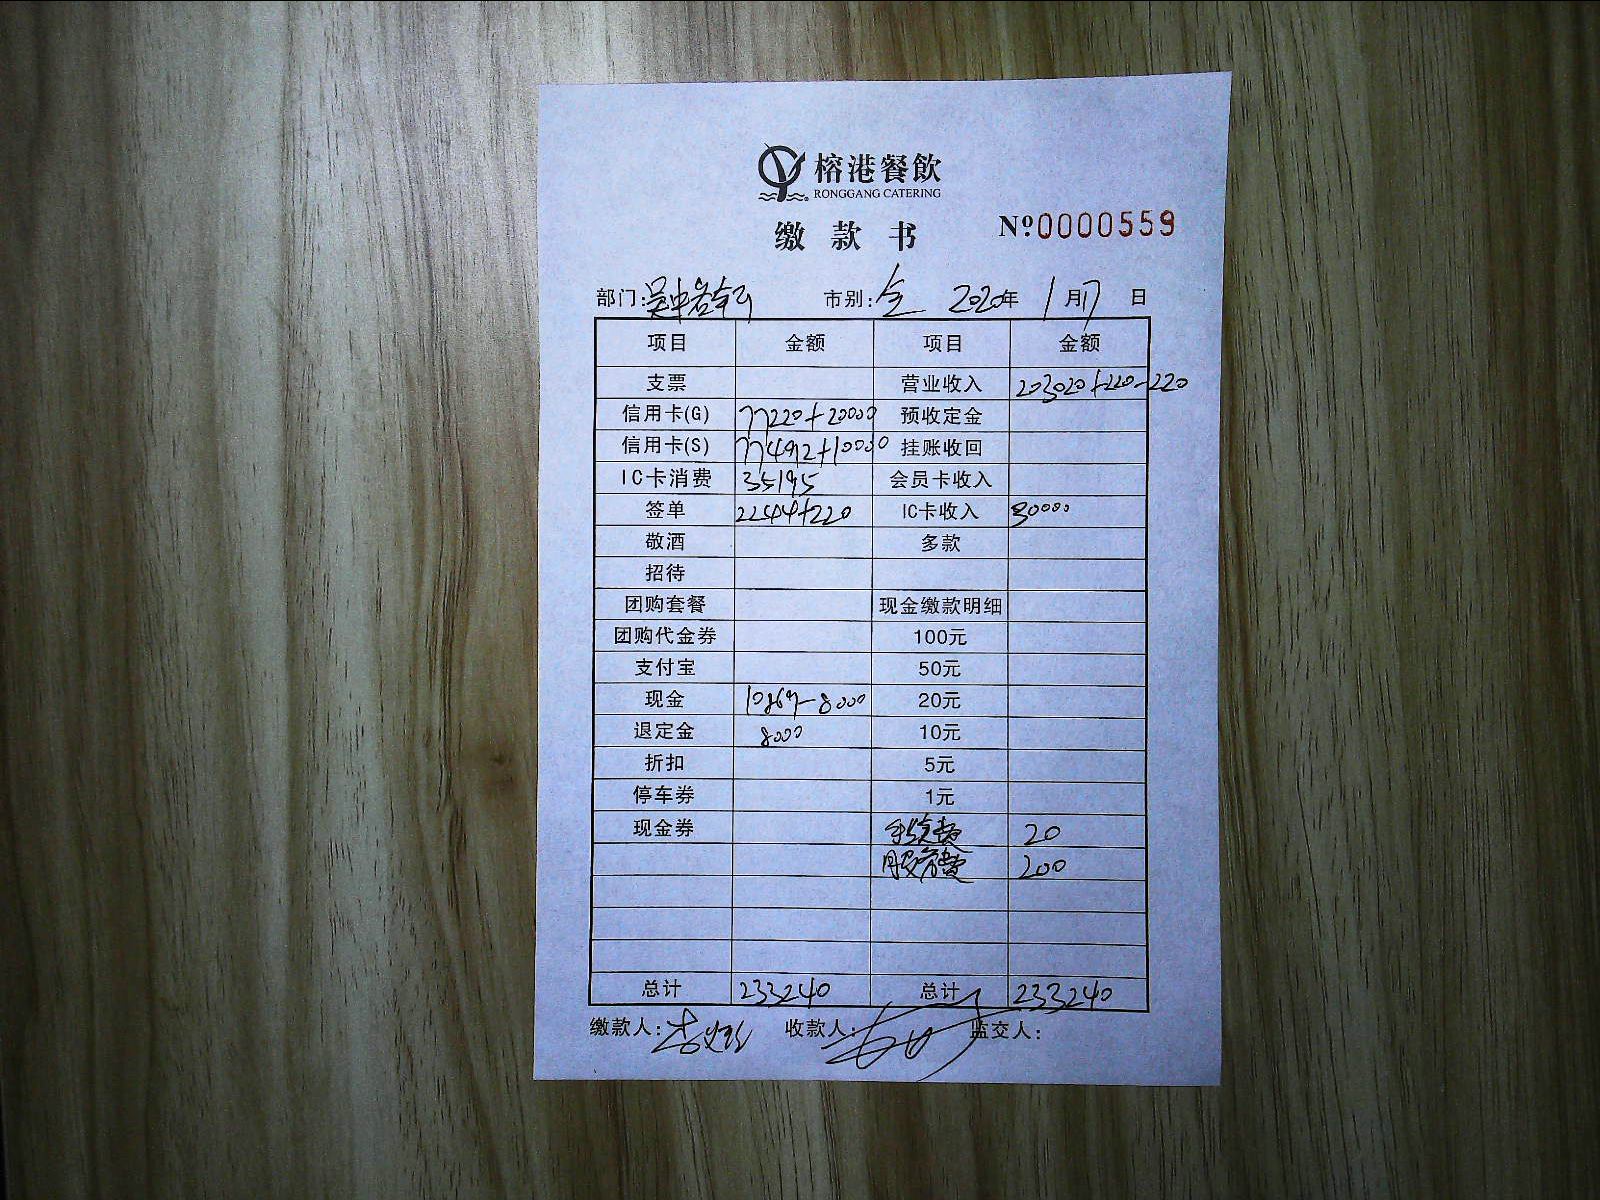 榕港餐飲
RONGGANG CATERING
缴款书 Nº0000559
部门: 市别:全 2020年 1月17日
项目 金额 项目 金额
支票 营业收入 203020+220-220
信用卡(G) 77220+20000 预收定金
信用卡(S) 挂账收回
IC卡消费 35195 会员卡收入
签单 22444+220 IC卡收入 30000
敬酒 多款
招待
团购套餐 现金缴款明细
团购代金券 100元
支付宝 50元
现金 10869-8000 20元
退定金 8000 10元
折扣 5元
停车券 1元
现金券 手续费 20
服务费 200
总计 233240 总计 233240
缴款人: 收款人: 监交人: